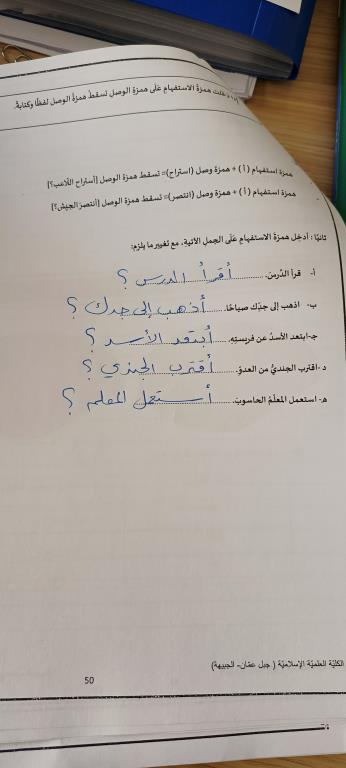 دخلت همزة الاستفهام على همزة الوصل تسقط همزة الوصل لفظًا وكتابةً.
همزة استفهام ( أ ) + همزة وصل (استراح)= تسقط همزة الوصل [أستراح اللّاعب؟]
همزة استفهام ( أ ) + همزة وصل (انتصر)= تسقط همزة الوصل [أنتصرَ الجيش؟]
ثانيًا : أدخل همزة الاستفهام على الجمل الآتية، مع تغيير ما يلزم:
أ- قرأ الدّرسَ. أقرأ الدرس ؟
ب- اذهب إلى جدّك صباحًا. أذهب إلى جدك ؟
ج-ابتعد الأسدُ عن فريستِهِ. أبتعد الأسد ؟
د-اقترب الجنديُّ من العدوّ. أقترب الجندي ؟
ه- استعمل المعلّمُ الحاسوبَ. أستعمل المعلم ؟
الكليّة العلميّة الإسلاميّة ( جبل عمّان- الجبيهة)
50